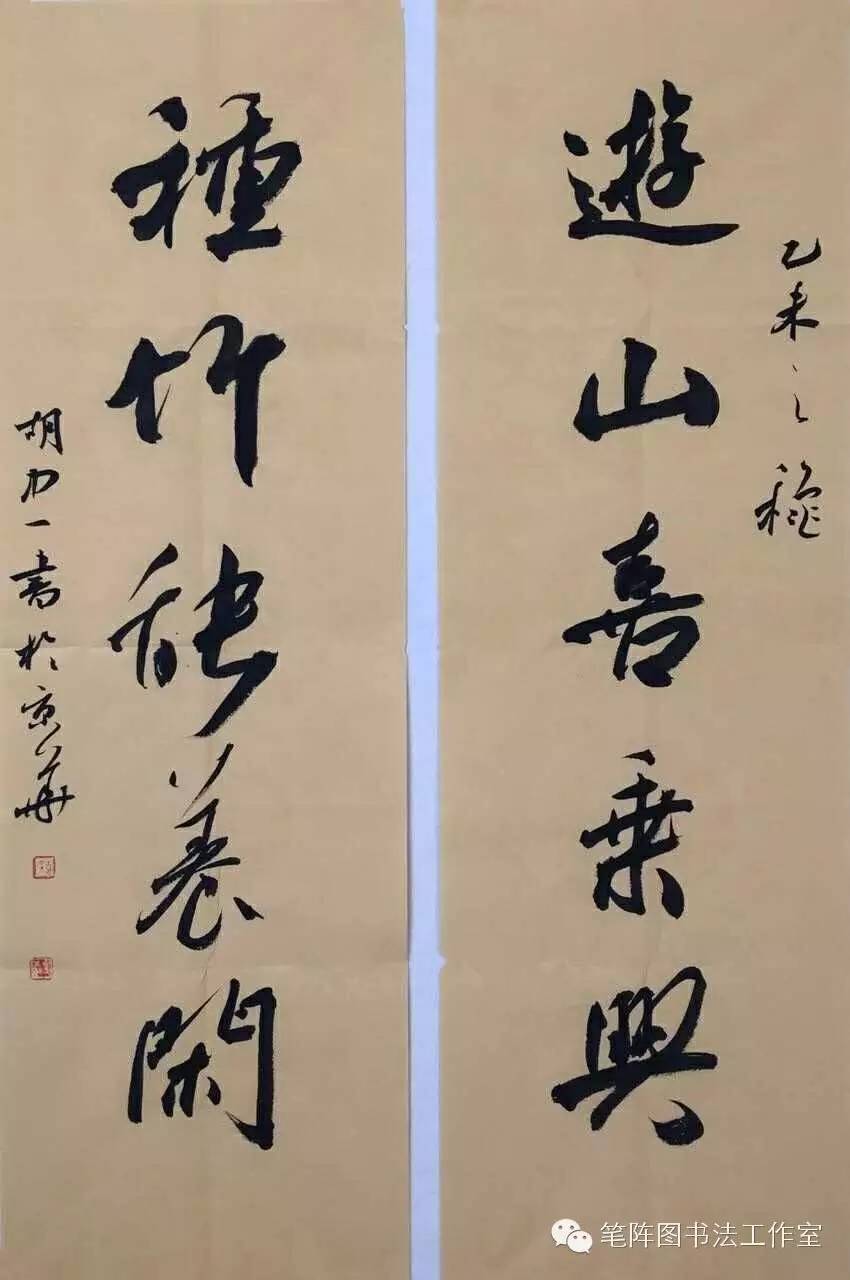 乙未之穐
遊山喜乘興
種竹能養閑
胡力一書於京華
笔阵图书法工作室